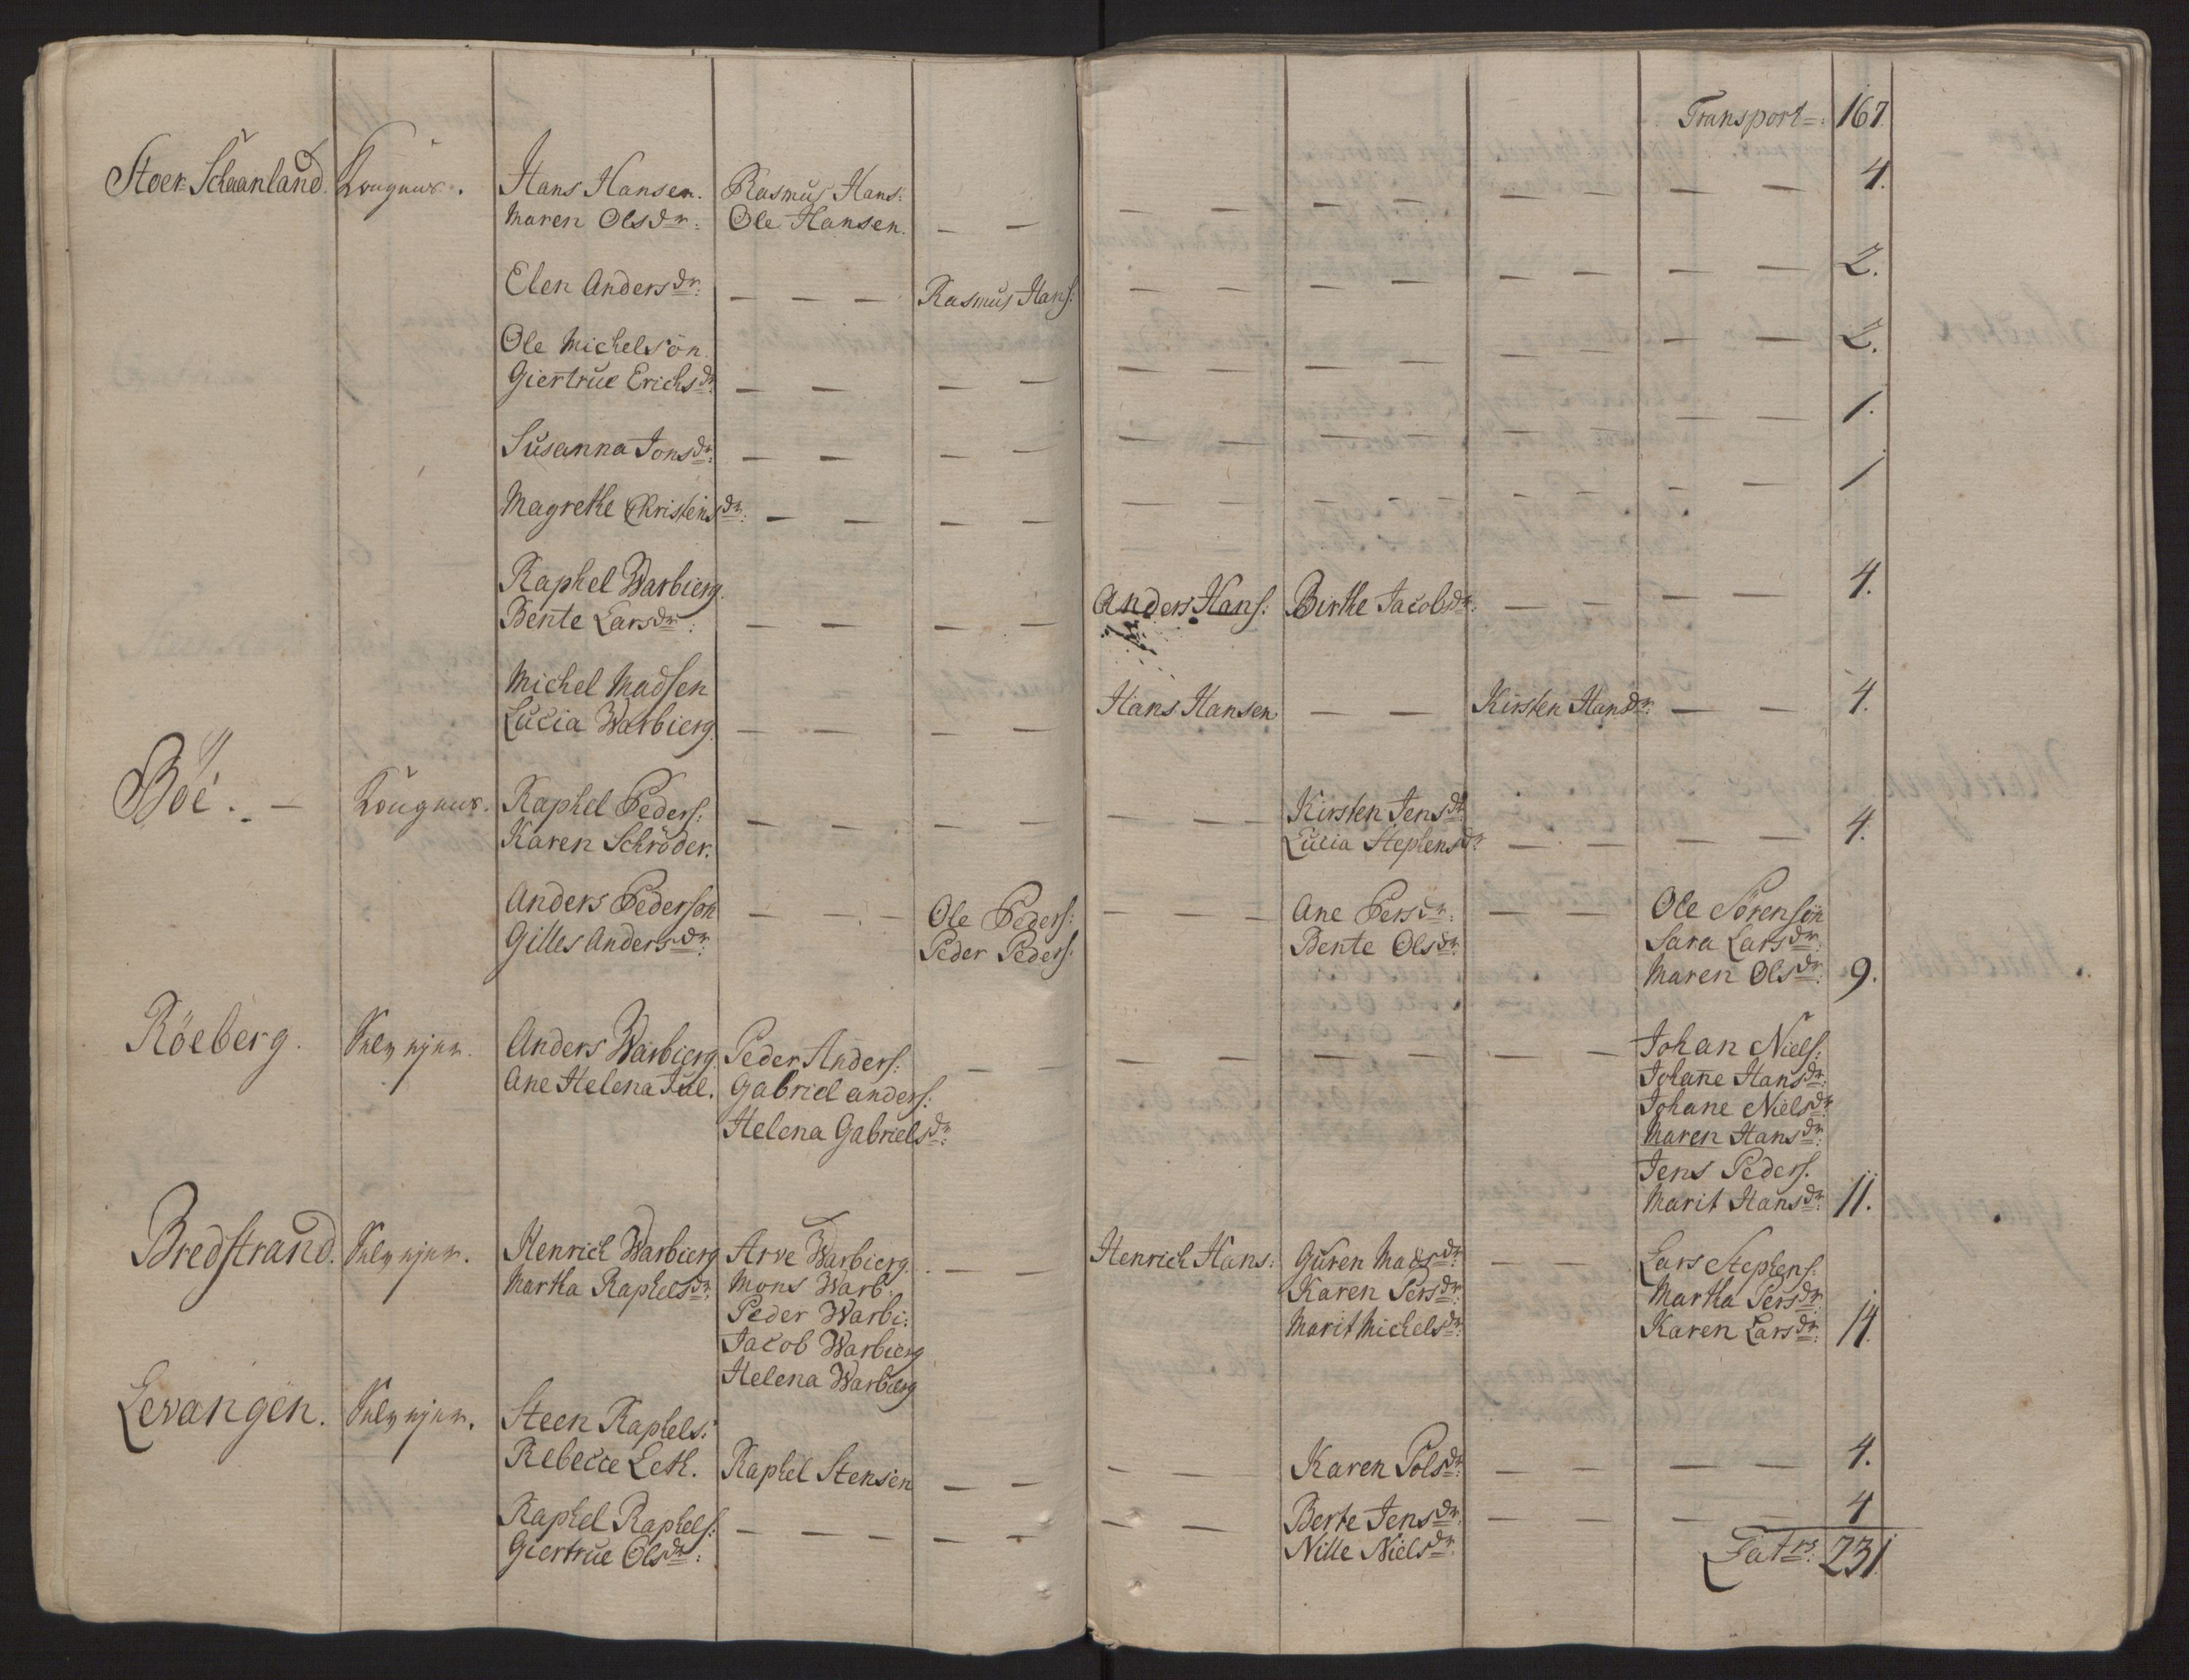 Transport = 167.
Stoer Schaanland. Hans Hansen. Rasmus Hans: — — — — — — — — 4.
Maren Olsdr: Ole Hansen. — —
Elen Andersdr: — — — Rasmus Hans: — — — — — — — — 2.
Ole Michelsön — — — — — — — — 2.
Giertrue Erichsdr — — — —
Susanna Jonsdr: — — — — — — — — — — 1.
Magrethe Christensdr: — — — — — — — — — — 1
Raphel Warbierg. Anders Hans: Birthe Jacobsdr: — — — — 4.
Bente Larsdr: — — — —
Michel Madsen Hans Hansen — — Kirsten Hansdr: — — 4.
Lucia Warbierg. — — — —
Böe. — Raphel Peders: — — — — — — Kirsten Jensdr:
Karen Schröder. Lucia Stephensdr — — — — 4.
Anders Pedersön — — — Ole Peders: — — — Ane Persdr: — — Ole Sörensön
Gilles Andersdr: Peder Peders: Bente Olsdr: Sara Larsdr:
Maren Olsdr: 9.
Röeberg. Selv ejer. Anders Warbierg. Peder Anders: — — — — — — — — Johan Niels:
Ane Helena Jul. Gabriel anders: Johane Hansdr:
Helena Gabrielsdr: Johane Nielsdr:
Maren Hansdr:
Jens Peders.
Marit Hansdr: 11.
Bredstrand. Selv ejer. Henrich Warbierg Arve Warbierg. — — Henrich Hans: Guren Madsdr: — — Lars Stephens:
Martha Raphelsdr: Mons Warb: Karen Persdr: Martha Persdr:
Peder Warbi: Marit Michelsdr: Karen Larsdr: 14.
Jacob Warbierg
Helena Warbierg
Levangen. Selv ejer. Steen Raphels:
Rebecce Leth. Raphel Stensen — — — — Karen Polsdr: — — — — 4.
Raphel Raphels: — — — — — — — Berte Jensdr: — — — — 4
Giertrue Olsdr: Nille Nielsdr: Latrs: 231.